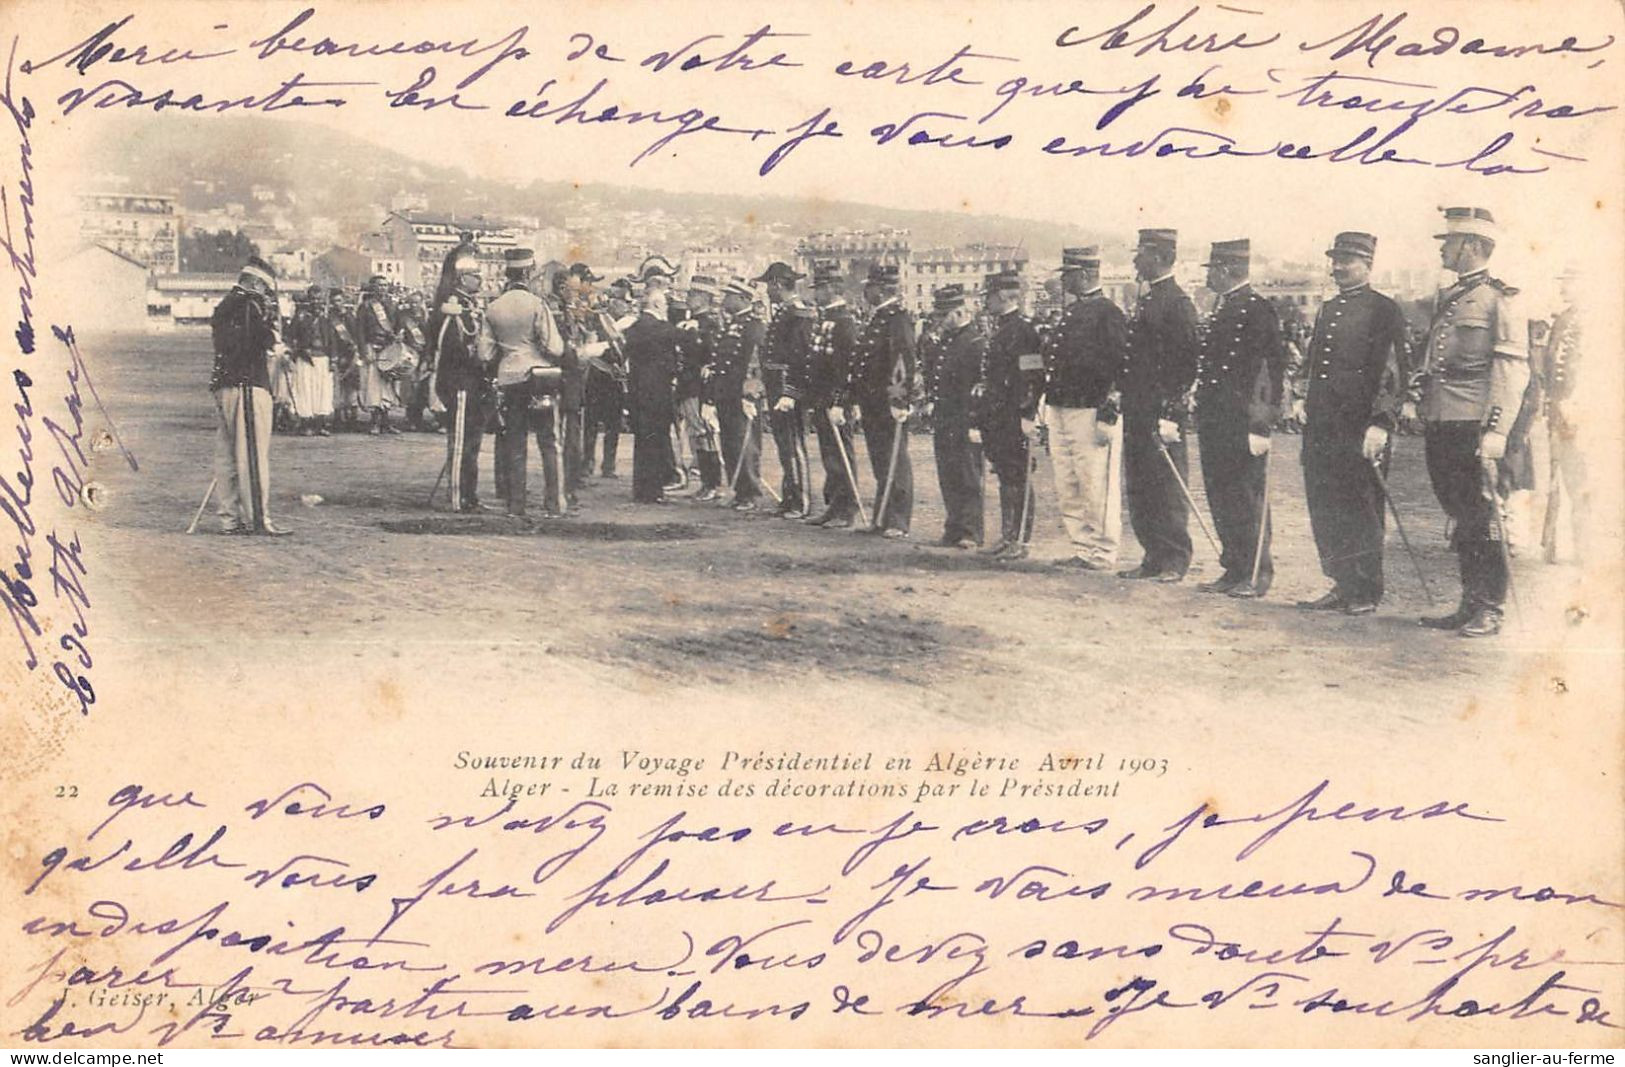 Chère Madame,
Merci beaucoup de votre carte que j'ai trouvée ra
vissante. En échange, je vous envoie celle là
Souvenir du Voyage Présidentiel en Algérie Avril 1903
22
Alger - La remise des décorations par le Président
que vous n'avez pas eu je crois, je pense
qu'elle vous fera plaisir. Je vais mieux de mon
indisposition, merci. Vous devez sans doute Vs pré
parer pr partir aux bains de mer. Je Vs souhaite de
J. Geiser, Alger
ben Vs amuser
Meilleurs sentiments
Edith
sanglier-au-ferme